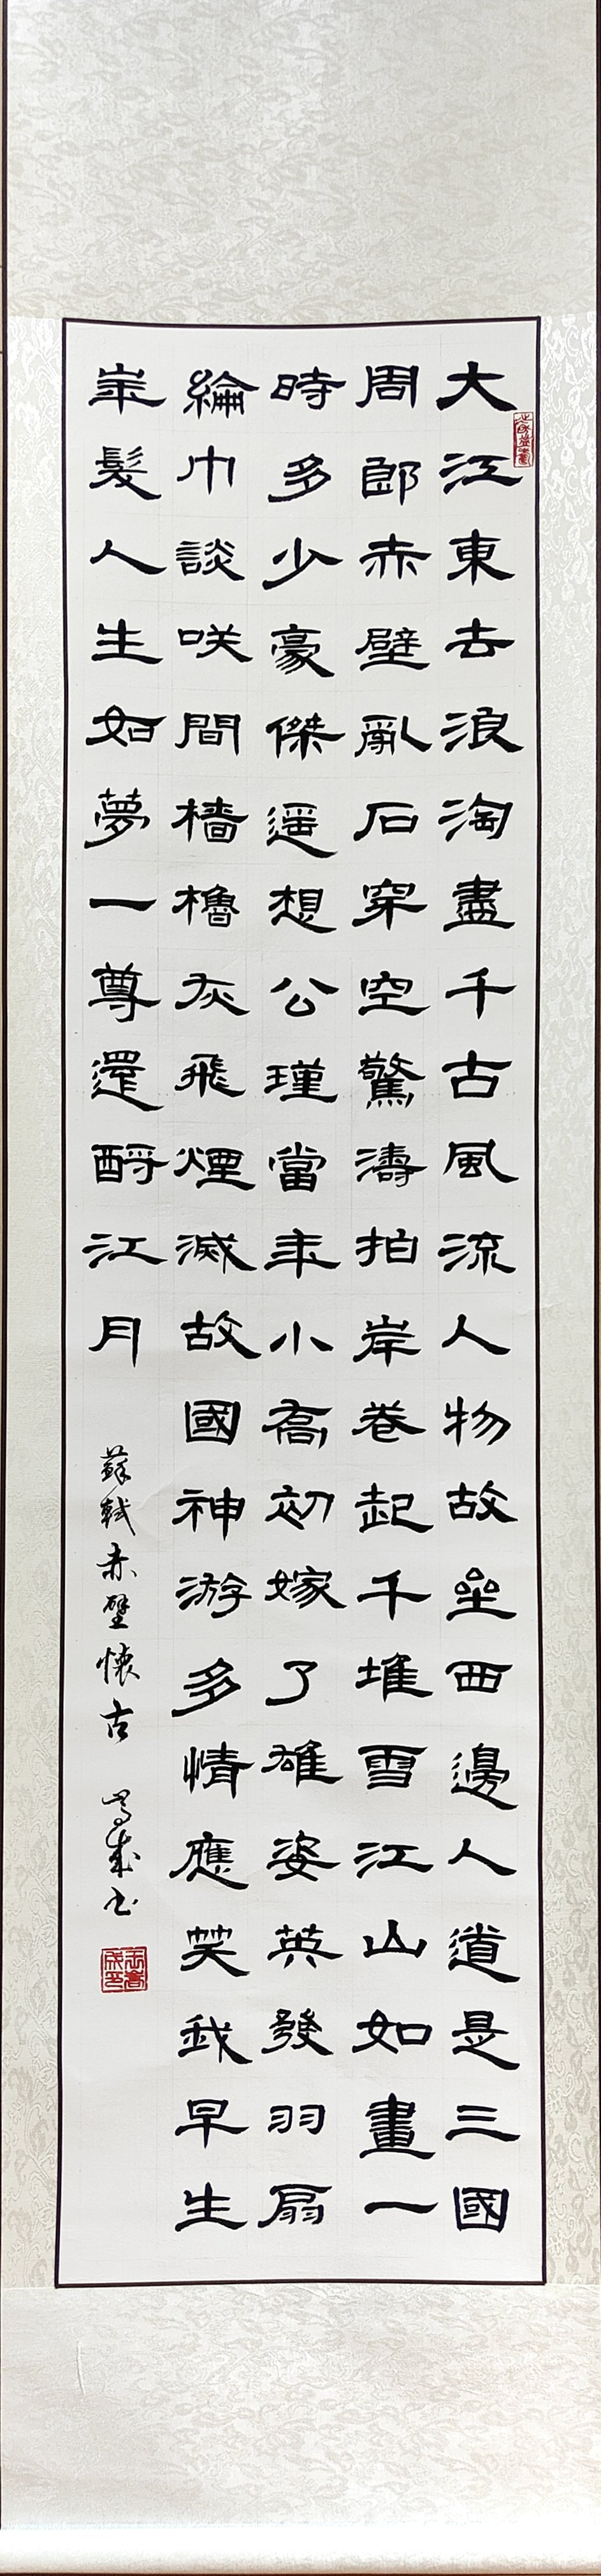 大江東去浪淘盡千古風流人物故壘西邊人道是三國
周郎赤壁亂石穿空驚濤拍岸卷起千堆雪江山如畫一
時多少豪傑遥想公瑾當年小喬初嫁了雄姿英發羽扇
綸巾談咲間檣櫓灰飛煙滅故國神游多情應笑我早生
華髮人生如夢一尊還酹江月
蘇軾赤壁懷古
成書